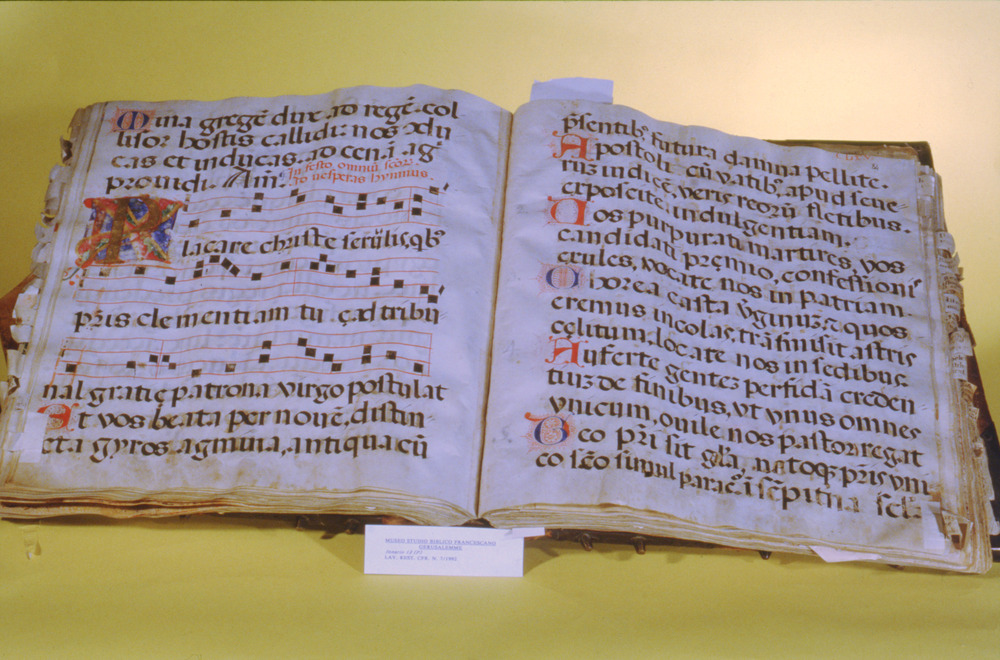 Mina gregē dire. ad regē. col
lisor hostis callidi: nos
cas et inducas. ad cenā ag̃
prouidi. Am̄.
In festo omniū scōr.
ad uesperas hymnus.
Placare christe seruulis, qb9
pr̄is clementiam tuę ad tribu
nal gratię patrona virgo postulat
Et vos beata per nouē. distin
cta gyros. agmina, antiqua cū
pn̄sentib9 futura damna pellite.
Apostoli cū vatib9. apud seue
rūz iudicē, veris reorū fletibus.
exposcite indulgentiam.
Uos purpurati martires, vos
candidati pręmio, confessioni
exules, vocate nos in patriam.
Chorea casta v̄ginuz. & quos
eremus incolas, trāsmdit astris
cęlitum, locate nos in sedibus.
Auferte gentez perfidā creden
tiuz de finibus, vt vnus omnes
vnicum, ouile nos pastor regat
Deo pr̄i sit gl̄a, natoq3 pr̄is vni
co sc̄o simul paracł. ī sēpitna scl.
MUSEO STUDIO BIBLICO FRANCESCANO
GERUSALEMME
LAV. REST. CPR. N. 7/1992